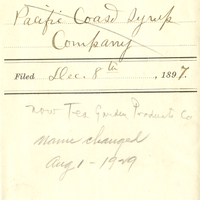 Pacific Coast Syrup
Company
Filed Dec. 8th, 1897.
now Tea Garden Products Co
name changed
Aug 1 - 1929